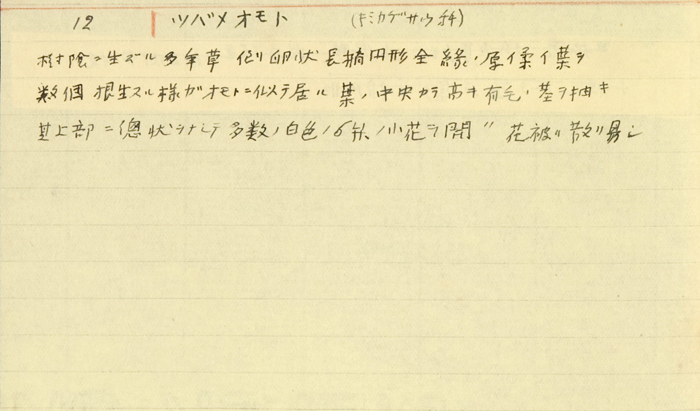 12 ツバメオモト (キミカゲサウ科)
樹陰ニ生ズル多年草 倒卵状長楕円形全縁ノ厚イ柔イ葉ヲ
数個根生スル様ガオモトニ似テ居ル 葉ノ中央カラ高キ有毛ノ茎ヲ抽キ
其上部ニ總状ヲナシテ多数ノ白色ノ小花ヲ開ク 花被ハ散リ易シ